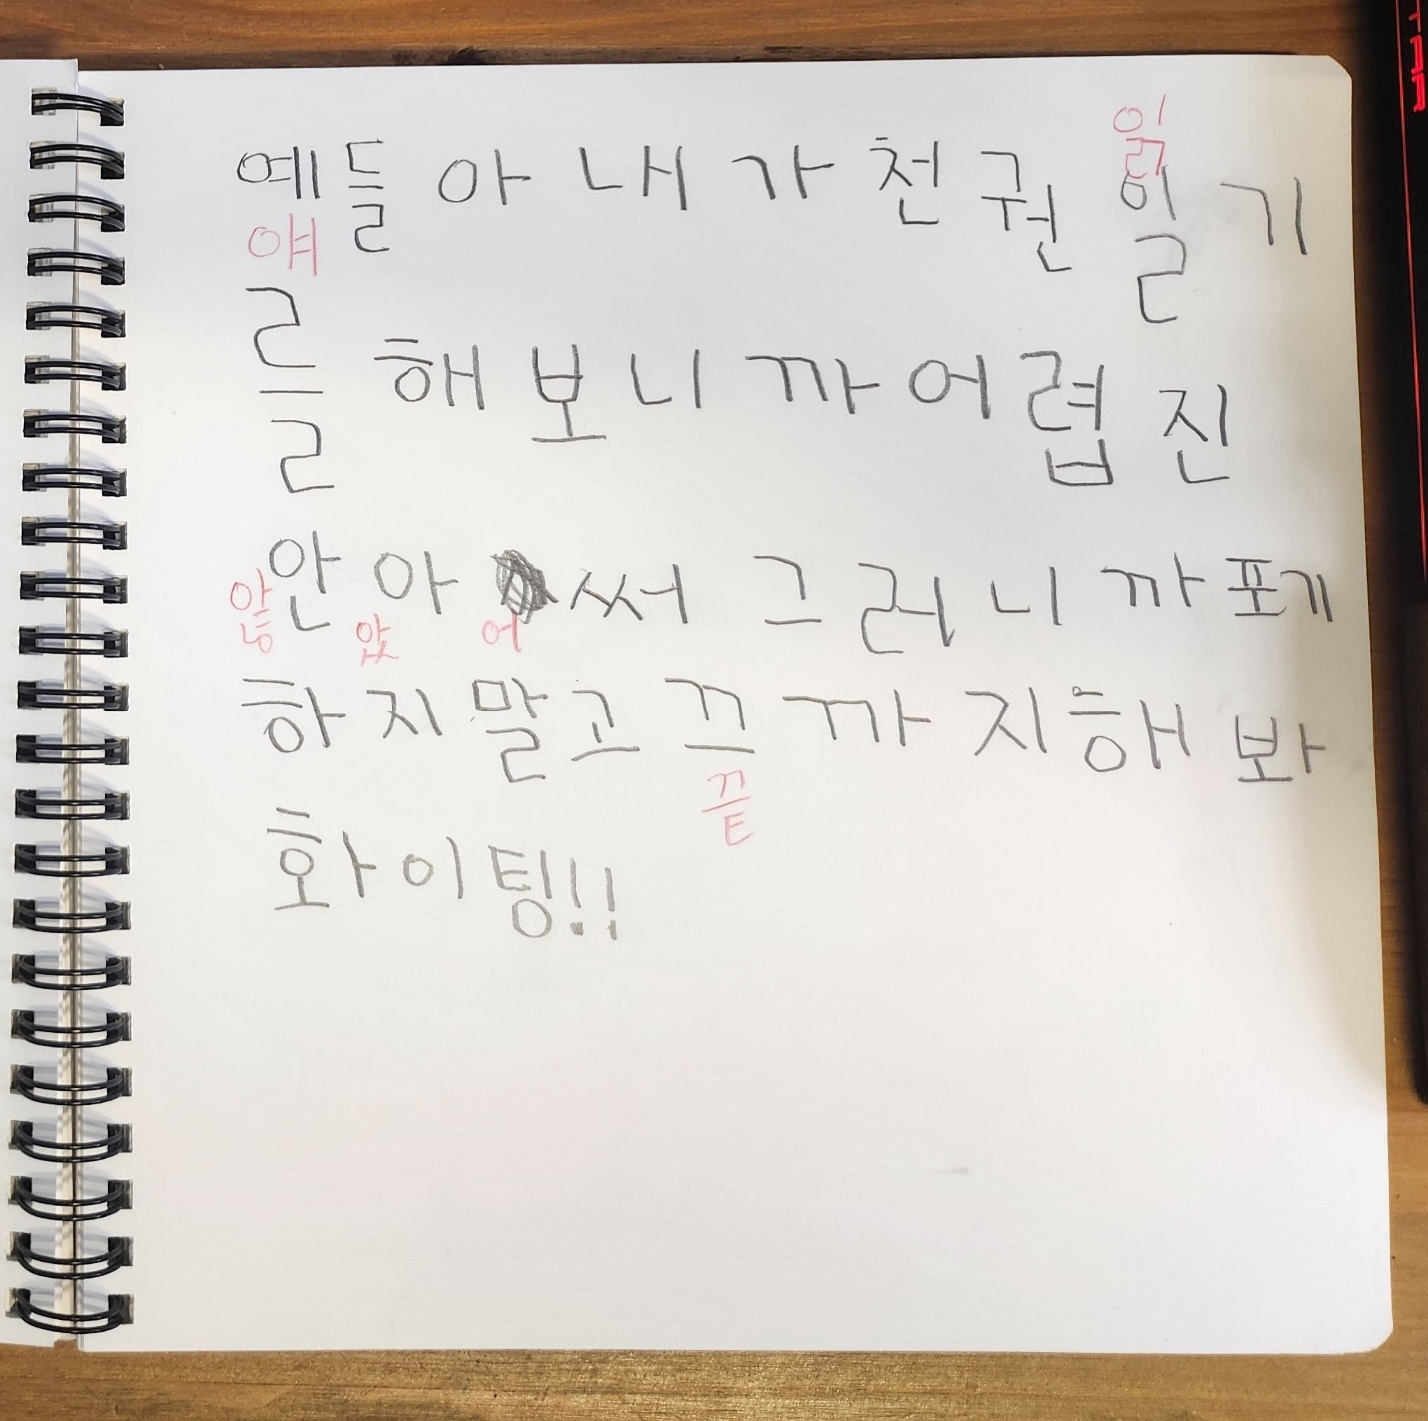 읽
예들아 내가 천권 일기
얘
를 해보니까 어렵진
안아써 그러니까 포기
않 았 어
하지말고 끄까지 해봐
끝
화이팅!!